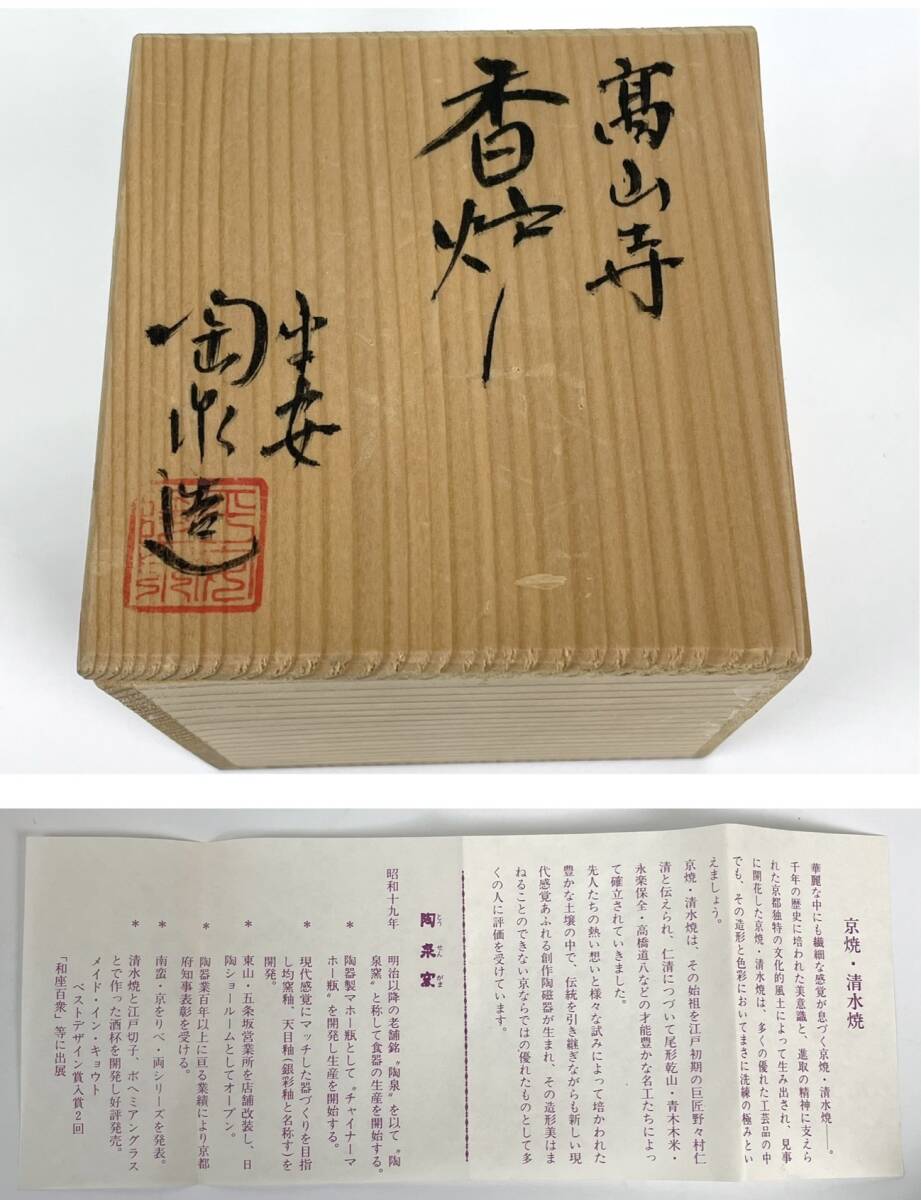 高山寺
香炉
平安
陶泉造
京焼・清水焼
華麗な中にも繊細な感覚が息づく京焼・清水焼――。
千年の歴史に培われた美意識と、進取の精神に支えら
れた京都独特の文化的風土によって生み出され、見事
に開花した京焼・清水焼は、多くの優れた工芸品の中
でも、その造形と色彩においてまさに洗練の極みとい
えましょう。
京焼・清水焼は、その始祖を江戸初期の巨匠野々村仁
清と伝えられ、仁清につづいて尾形乾山・青木木米・
永楽保全・高橋道八などの才能豊かな名工たちによっ
て確立されていきました。
先人たちの熱い想いと様々な試みによって培かわれた
豊かな土壌の中で、伝統を引き継ぎながらも新しい現
代感覚あふれる創作陶磁器が生まれ、その造形美はま
ねることのできない京ならではの優れたものとして多
くの人に評価を受けています。
陶泉窯
とうせんがま
昭和十九年　明治以降の老舗銘〝陶泉〟を以て〝陶
泉窯〟と称して食器の生産を開始する。
＊　陶器製マホー瓶として〝チャイナーマ
ホー瓶〟を開発し生産を開始する。
＊　現代感覚にマッチした器づくりを目指
し均窯釉、天目釉(銀彩釉と名称す)を
開発。
＊　東山・五条坂営業所を店舗改装し、日
陶ショールームとしてオープン。
＊　陶器業百年以上に亘る業績により京都
府知事表彰を受ける。
＊　南蛮・京をりべ・両シリーズを発表。
＊　清水焼と江戸切子、ボヘミアングラス
とで作った酒杯を開発し好評発売。
メイド・イン・キョウト
ベストデザイン賞入賞2回
「和座百衆」等に出展